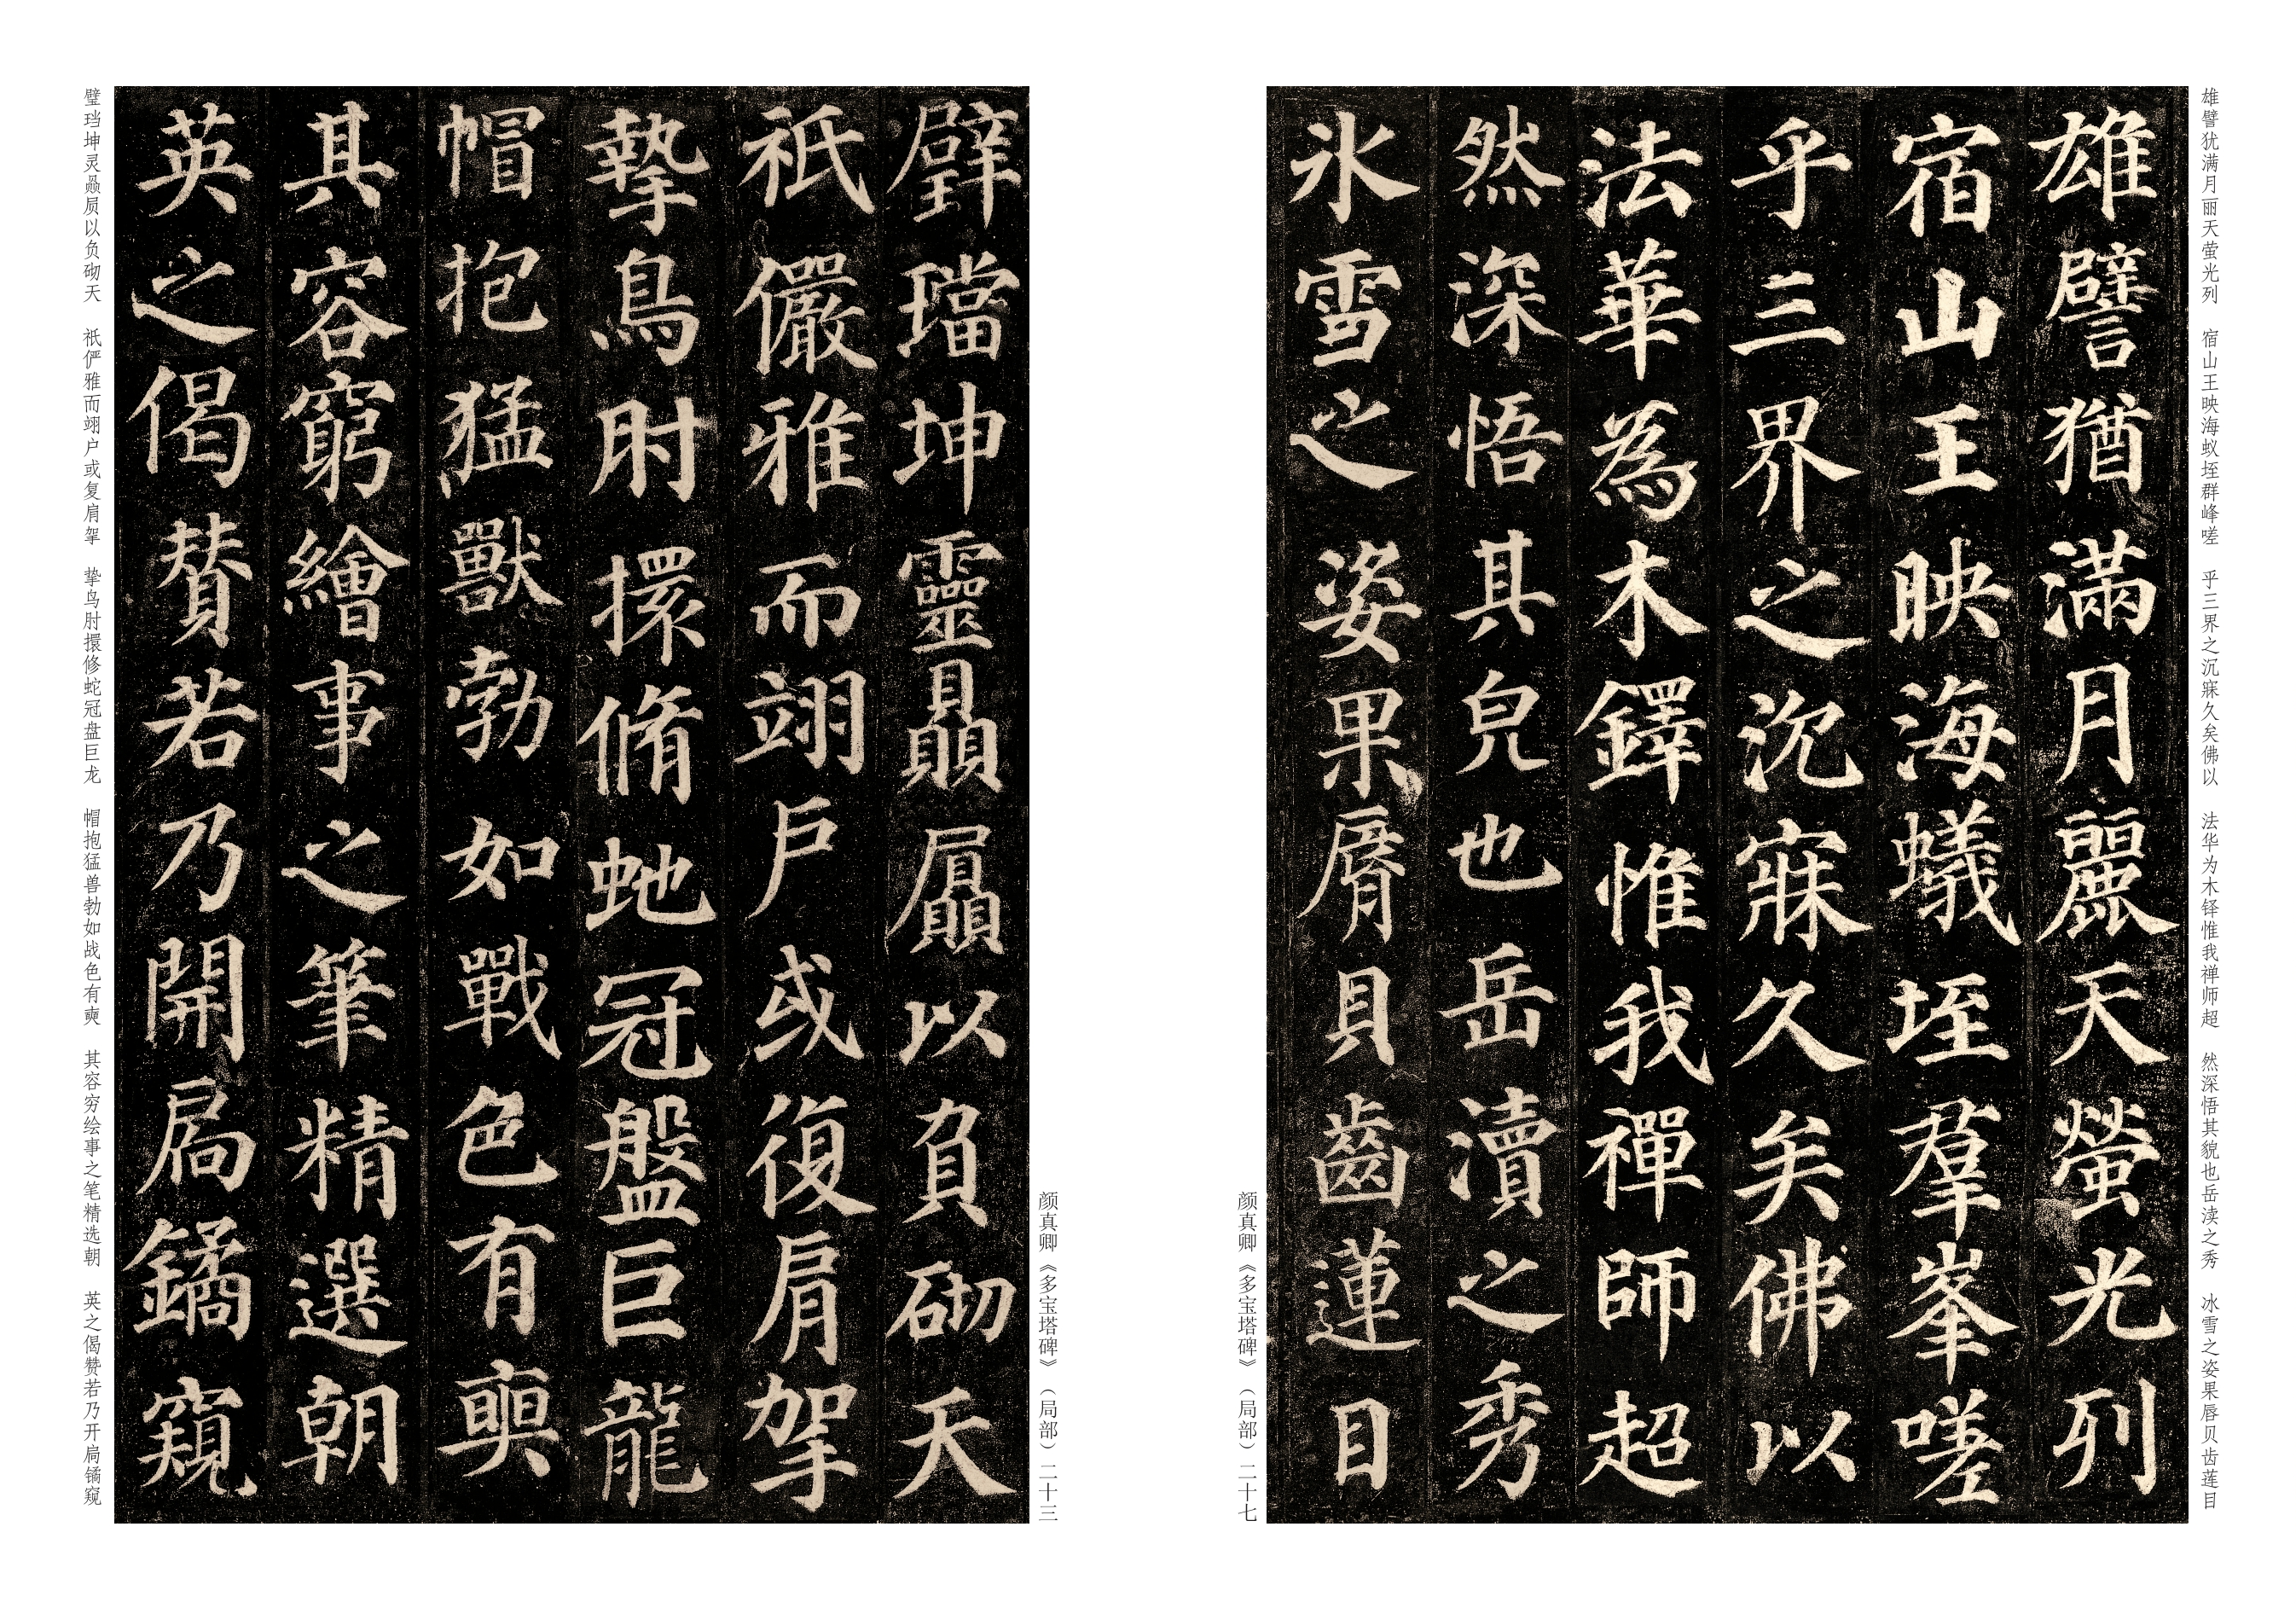 雄譬犹满月丽天萤光列 宿山王映海蚁垤群峰嗟 乎三界之沉寐久矣佛以 法华为木铎惟我禅师超 然深悟其貌也岳渎之秀 冰雪之姿果唇贝齿莲目
雄譬猶滿月麗天螢光列
宿山王映海蟻垤羣峯嗟
乎三界之沉寐久矣佛以
法華為木鐸惟我禪師超
然深悟其皃也岳瀆之秀
氷雪之姿果脣貝齒蓮目
颜真卿《多宝塔碑》（局部）二十七
颜真卿《多宝塔碑》（局部）二十三
璧璫坤靈贔屭以負砌天
祇儼雅而翊戶或復肩挐
摯鳥肘擐脩虵冠盤巨龍
帽抱猛獸勃如戰色有奭
其容窮繪事之筆精選朝
英之偈贊若乃開扃鐍窺
璧珰坤灵赑屃以负砌天 祇俨雅而翊户或复肩挐 挚鸟肘擐修蛇冠盘巨龙 帽抱猛兽勃如战色有奭 其容穷绘事之笔精选朝 英之偈赞若乃开扃鐍窥